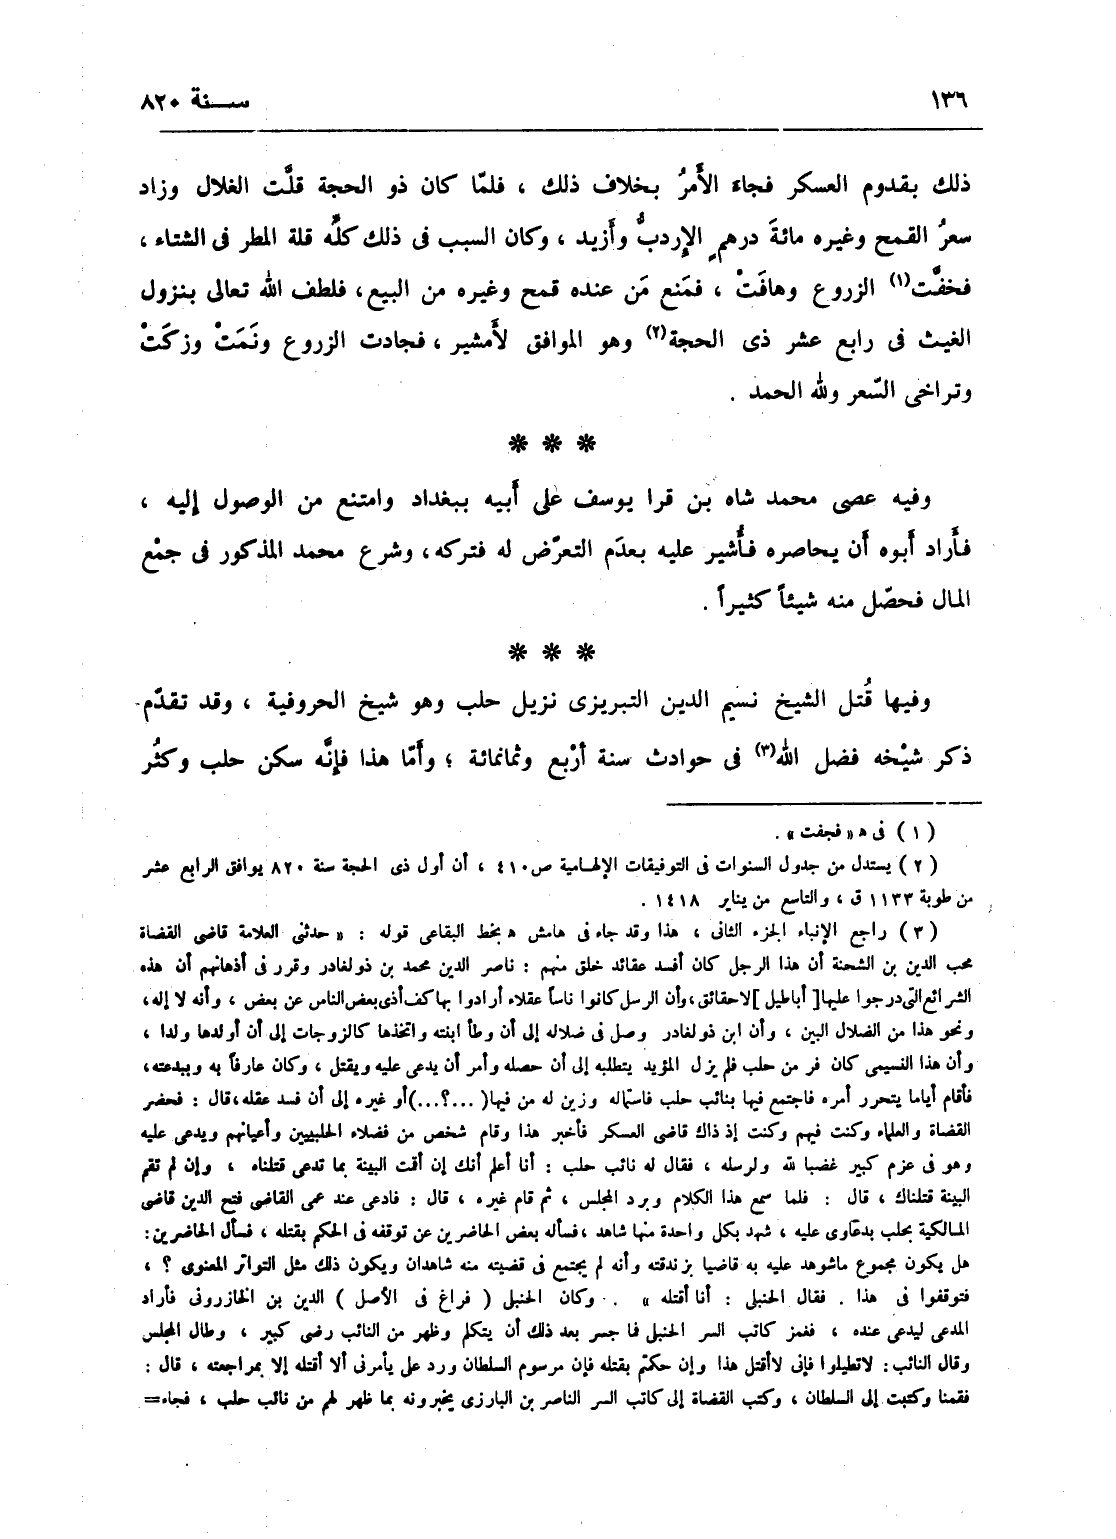 ١٣٦ ســنة ٨٢٠
ذلك بقدوم العسكر فجاءَ الأَمرُ بخلاف ذلك ، فلمّا كان ذو الحجة قلَّت الغلال وزاد
سعرُ القمح وغيره مائةَ درهمٍ الإِردبُّ وأَزيد ، وكان السبب فى ذلك كلِّه قلة المطر فى الشتاء ،
فخفَّت(١) الزروع وهافَتْ ، فمَنع مَن عنده قمح وغيره من البيع، فلطف الله تعالى بنزول
الغيث فى رابع عشر ذى الحجة(٢) وهو الموافق لأَمشير ، فجادت الزروع ونَمَتْ وزكَتْ
وتراخى السّعر ولله الحمد .
❊ ❊ ❊
وفيه عصى محمد شاه بن قرا يوسف على أَبيه ببغداد وامتنع من الوصول إليه ،
فأَراد أَبوه أَن يحاصره فأُشير عليه بعدَم التعرّض له فتركه، وشرع محمد المذكور فى جمْع
المال فحصّل منه شيئاً كثيراً .
❊ ❊ ❊
وفيها قُتل الشيخ نسيم الدين التبريزى نزيل حلب وهو شيخ الحروفية ، وقد تقدّم
ذكر شيْخه فضل الله(٣) فى حوادث سنة أرْبع وثمانمائة ؛ وأَمّا هذا فإنَّه سكن حلب وكثُر
(١) فى ه « فجفت » .
(٢) يستدل من جدول السنوات فى التوفيقات الإلهامية ص٤١٠ ، أن أول ذى الحجة سنة ٨٢٠ يوافق الرابع عشر
من طوبة ١١٣٣ ق ، والتاسع من يناير ١٤١٨ .
(٣) راجع الإنباء الجزء الثانى ، هذا وقد جاء فى هامش ه بخط البقاعى قوله : « حدثنى العلامة قاضى القضاة
محب الدين بن الشحنة أن هذا الرجل كان أفسد عقائد خلق منهم : ناصر الدين محمد بن ذولغادر وقرر فى أذهانهم أن هذه
الشرائع التى درجوا عليها [ أباطيل ] لا حقائق، وأن الرسل كانوا ناساً عقلاء أرادوا بها كف أذى بعض الناس عن بعض ، وأنه لا إله،
ونحو هذا من الضلال البين ، وأن ابن ذولغادر وصل فى ضلاله إلى أن وطأ ابنته واتخذها كالزوجات إلى أن أولدها ولدا ،
وأن هذا النسيمى كان فر من حلب فلم يزل المؤيد يتطلبه إلى أن حصله وأمر أن يدعى عليه ويقتل ، وكان عارفاً به وببدعته،
فأقام أياما يتحرر أمره فاجتمع فيها بنائب حلب فاستماله وزين له من فيها( ...؟...)أو غيره إلى أن فسد عقله، قال : فحضر
القضاة والعلماء وكنت فيهم وكنت إذ ذاك قاضى العسكر فأخبر هذا وقام شخص من فضلاء الحلبيين وأعيانهم ويدعى عليه
وهو فى عزم كبير غضبا لله ولرسله ، فقال له نائب حلب : أنا أعلم أنك إن أقت البينة بما تدعى قتلناه ، وإن لم تقم
البينة قتلناك ، قال : فلما سمع هذا الكلام وبرد المجلس ، ثم قام غيره ، قال : فادعى عند عمى القاضى فتح الدين قاضى
المالكية بحلب بدعاوى عليه ، شهد بكل واحدة منها شاهد ، فسأله بعض الحاضرين عن توقفه فى الحكم بقتله ، فسأل الحاضرين:
هل يكون مجموع ماشوهد عليه به قاضيا بزندقته وأنه لم يجتمع فى قضيته منه شاهدان ويكون ذلك مثل التواتر المعنوى ؟ ،
فتوقفوا فى هذا . فقال الحنبلى : أنا أقتله » . وكان الحنبلى ( فراغ فى الأصل ) الدين بن الخازرونى فأراد
المدعى ليدعى عنده ، فغمز كاتب السر الحنبلى فما جسر بعد ذلك أن يتكلم وظهر من النائب رضى كبير ، وطال المجلس
وقال النائب: لا تطيلوا فإنى لا أقتل هذا وإن حكمتم بقتله فإن مرسوم السلطان ورد على يأمرنى ألا أقتله إلا بمراجعته ، قال :
فقمنا وكتبت إلى السلطان ، وكتب القضاة إلى كاتب السر الناصر بن البارزى يخبرونه بما ظهر لهم من نائب حلب ، فجاء=